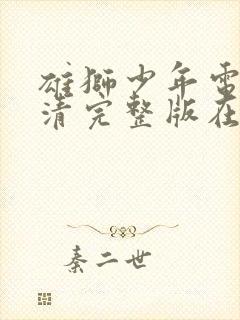 雄獅少年電
清完整版在
秦二世